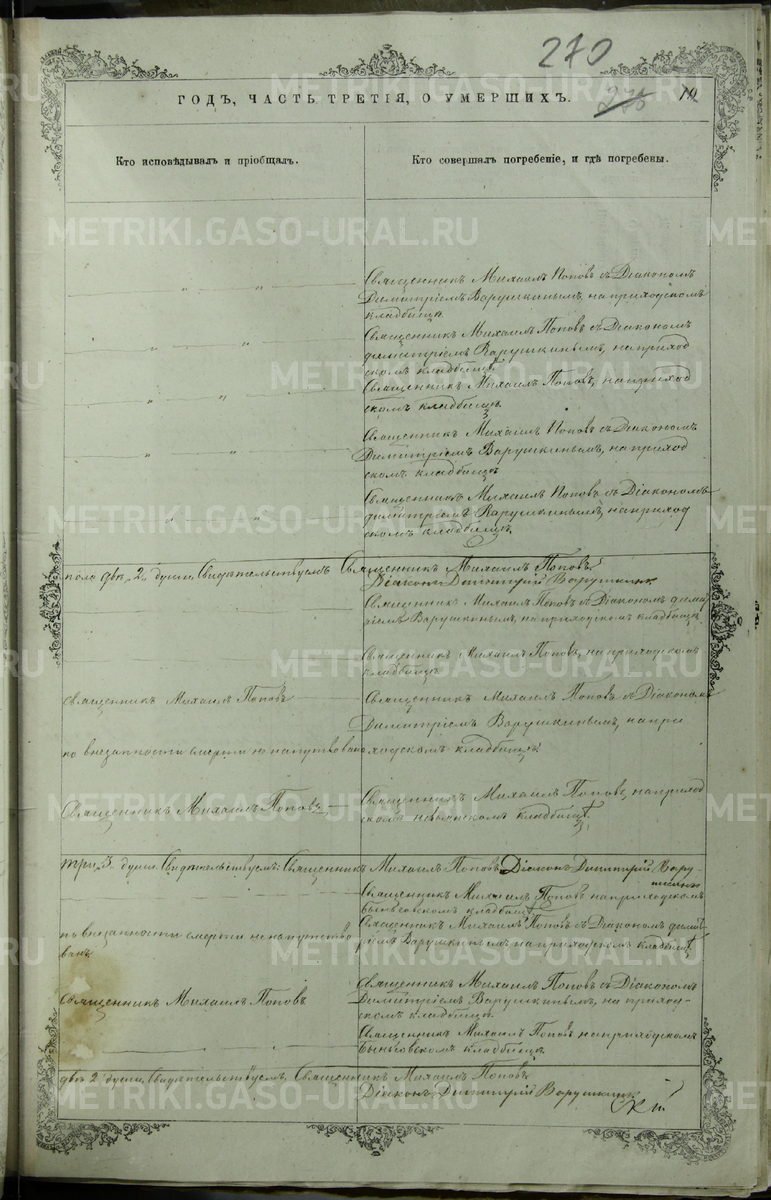 270
ГОДЪ, ЧАСТЬ ТРЕТІЯ, О УМЕРШИХЪ.
19
Кто исповѣдывалъ и пріобщалъ.
Кто совершалъ погребеніе, и гдѣ погребены.
METRIKI.GASO-URAL.RU
Священникъ Михаилъ Поповъ съ Діакономъ
Димитріемъ Варушкинымъ, на приходскомъ
кладбищѣ.
Священникъ Михаилъ Поповъ съ Діакономъ
Димитріемъ Варушкинымъ, на приход
скомъ кладбищѣ.
Священникъ Михаилъ Поповъ, на приход
скомъ кладбищѣ.
Священникъ Михаилъ Поповъ съ Діакономъ
Димитріемъ Варушкинымъ, на приход
скомъ кладбищѣ.
Священникъ Михаилъ Поповъ съ Діакономъ
Димитріемъ Варушкинымъ, на приход
скомъ кладбищѣ.
пола двѣ 2 души. Свидѣтельствуемъ Священникъ Михаилъ Поповъ
Діаконъ Димитрій Варушкинъ
Священникъ Михаилъ Поповъ съ Діакономъ Димит
ріемъ Варушкинымъ, на приходскомъ кладбищѣ
Священникъ Михаилъ Поповъ, на приходскомъ
кладбищѣ
священникъ Михаилъ Поповъ
Священникъ Михаилъ Поповъ съ Діакономъ
Димитріемъ Варушкинымъ, на при
по внезапности смерти не напутствовано
ходскомъ кладбищѣ
Священникъ Михаилъ Поповъ
Священникъ Михаилъ Поповъ, на приход
скомъ невьянскомъ кладбищѣ
три 3 души. Свидѣтельствуемъ: Священникъ Михаилъ Поповъ Діаконъ Димитрій Вару-
шкинъ
Священникъ Михаилъ Поповъ на приходскомъ
Быньговскомъ кладбищѣ
по внезапности смерти не напутство
ванъ
Священникъ Михаилъ Поповъ съ Діакономъ Димит
ріемъ Варушкинымъ на приходскомъ кладбищѣ
Священникъ Михаилъ Поповъ
Священникъ Михаилъ Поповъ съ Діакономъ
Димитріемъ Варушкинымъ, на приход-
скомъ кладбищѣ.
Священникъ Михаилъ Поповъ на приходскомъ
Быньговскомъ кладбищѣ
двѣ 2 души. Свидѣтельствуемъ Священникъ Михаилъ Поповъ
Діаконъ Димитрій Варушкинъ